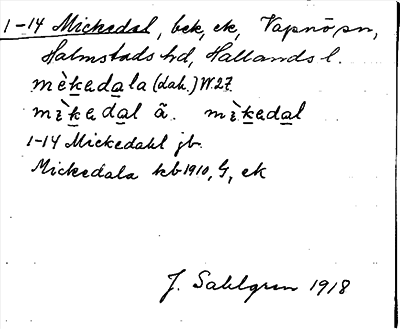 1-14 Mickedal, bek, ek, Vapnö sn,
Halmstads hd, Hallands l.
mèkedala (dah.) W.27.
mìkedal ã. mìkedal
1-14 Mickedahl jb.
Mickedala kb 1910, G, ek
J. Sahlgren 1918